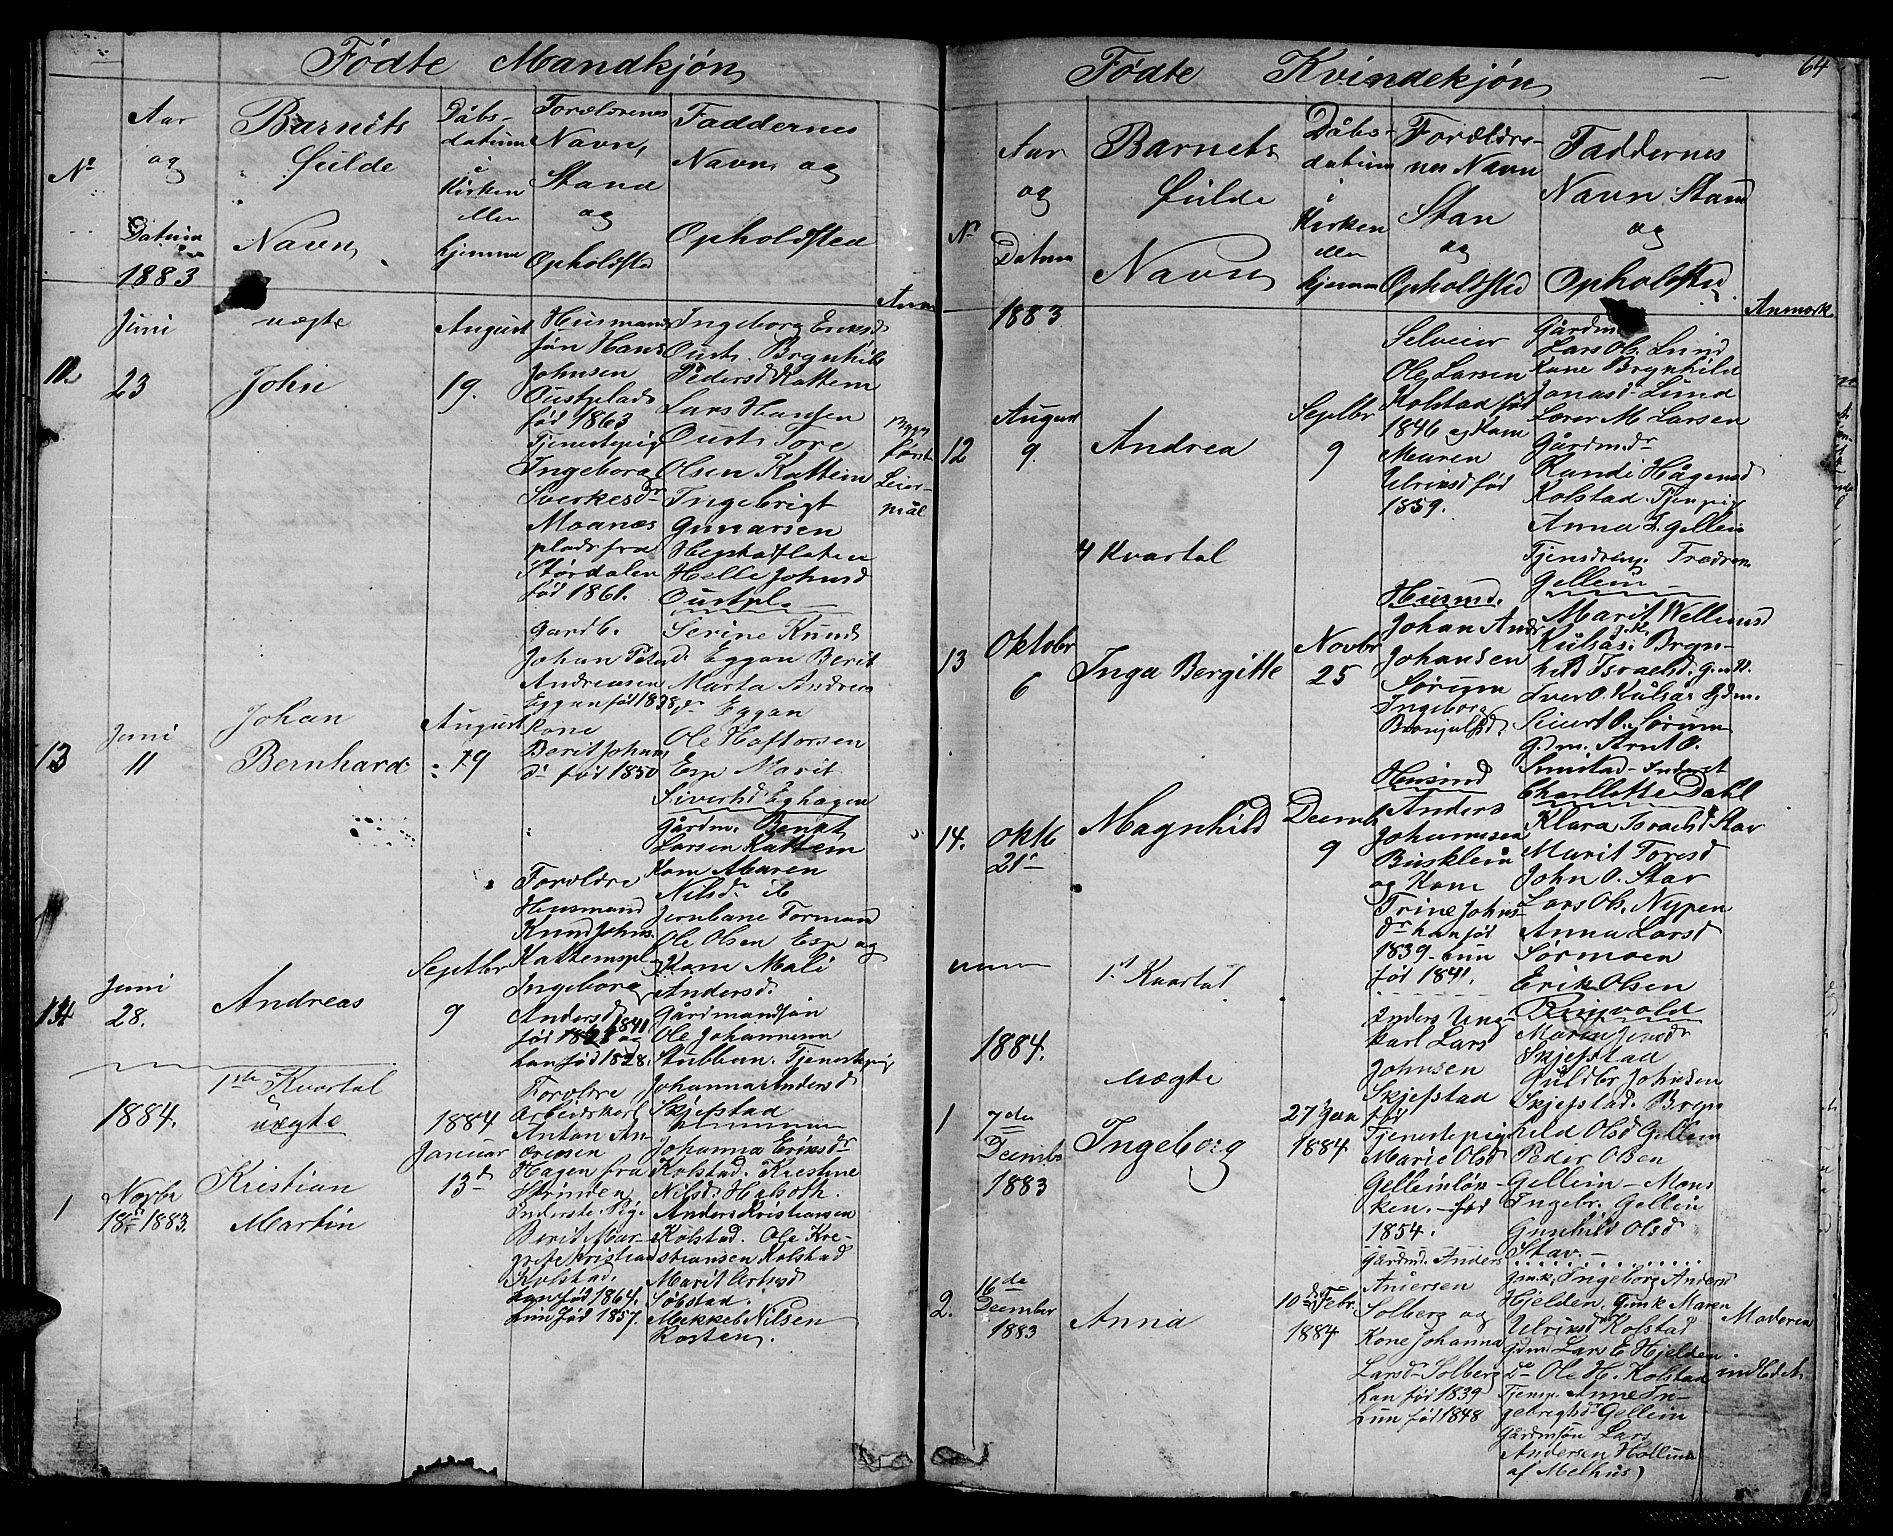 Fødte Mandkjøn
No
Aar
og
Datum
1883
Barnets
fulde
Navn
Dåbs-
datum
i
Kirken
eller
hjemme
Forældrenes
Navn,
Stand
og
Opholdsted
Faddernes
Navn og
Opholdsted
Anm
Juni
23
uægte
John
August
19.
Husmands
søn Hans
Johnsen
Oustplads
fød 1863
Tjenestepige
Ingeborg
Sverkesdr
Moanes
plads fra
Størdalen
fød 1861.
Ingeborg Eriksd
Oust. Brynhild
Pedersd Kattem
Lars Hansen
Oust. Tore
Olsen Kattem
Ingebrigt
Gunarsen
Helle Johnsd
Oustpl.
Leier-
mål
13
Juni
11
Johan
Bernhard
August
19
Gardb.
Johan Peter
Andreasen
Eggan fød 1838
Kone
Berit Johns
dr fød 1850
Serine Knuds
d. Eggan Berit
Marta Andreas
dr Eggan
Ole Haftorsen
Esp Marit
Sivertsd Eghagen
14
Juni
28.
Andreas
Septbr
9
Forældre
Husmand
Knud Johns.
Kattempl.
Ingeborg
Andersd
1841
han fød 1828.
Gårdm. Bengt
Larsen Kattem
Kone Maren
Nilsd. ib
Jernbane Formand
Ole Olsen Esp og
Kone Mali
Andersd.
Gårdmandsøn
Ole Johannesen
Stubban. Tjenestepig
Johanna Andersd
Skjefstad
1ste Kvartal
1884.
uægte
1
Novbr
18de 1883.
Kristian
Martin
1884
Januar
13de
Forældre
Arbeidskarl
Anton An-
dresen
Hagen fra
Strinden
Berit Mar-
grete Kristians
Kolstad.
han fød 1864.
hun fød 1857.
Johanna Eriksdr
Kolstad. Kristine
Nilsd. Halseth.
Anders Kristiansen
Kolstad. Ole Kre-
stiansen Kolstad
Marit Arntsd
Søbstad.
Mekkel Nilsen
Rosten.
Fødte Kvindekjøn
64
No
Aar
og
Datum
1883
Barnets
fulde
Navn
Dåbs-
datum
i
Kirken
eller
hjemme
Forældre-
nes Navn
Stan
og
Opholdsted
Faddernes
Navn Stand
og
Opholdsted
Anmærk
12
August
9.
Andrea
Septbr
9
Selveier
Ole Larsen
Kolstad fød
1846 og Kone
Maren
Ulriksd fød
1859.
Gårdm
Lars Ols. Lund
Kone Brynhild
Jonasd. Lund
Lærer M. Larsen
Gårdmdr
Kolstad. Tjenpig
Anna I. Gellein
Gellein
4 Kvartal
13
Oktober
6
Inga Bergitte
Novbr
25
Husmd.
Johan Andr
Johansen
Sørum
Ingeborg
Marit Wellemsd
Kulsås. Bryn-
hild Israelsd.
Iver O. Kulsås Gdm.
Sivert O. Sørum
Gdm. Arnt O.
Charllotte Dahl
14.
Oktb
21de
Magnhild
Decemb
9
Husmd
Anders
Johannesen
Busklein
og Kone
Trine Johns-
dr han fød
1839 - hun
fød 1841.
Klara Israelsd Stav
Marit Toresd
John O. Stav
Lars Ols. Nypen
Anna Larsd
Sørmoen
Erik Olsen
Ringvold
1st Kvartal
1884.
uægte
1
7de
Decembr
1883
Ingeborg
27 Jan
1884
Anders Ung-
karl Lars
Johnsen
Skjefstad
Tjenestepig
Marie Olsd
Gelleinløk-
ken. - fød
1854.
Marin Jensdr
Skjefstad
Guldbr Johnsen
Skjefstad. Bryn
hild Olsd Gellein
Peder Olsen
Gellein - Mons
Ingebr. Gellein
Gunhild Olsd
Stav.
2.
16de
December
1883
Anna
10de Febr.
1884
Gårdmd. Anders
Andersen
Solberg og
Kone Johanna
Larsd. Solberg
han fød 1839
hun fød 1848
Gmk. Ingeborg Andersd
Hjelden. Gmk Maren
Ulriksdr Kolstad
Gdm. Lars E Hjelden.
do Ole H. Kolstad
Tjenp. Anne In-
gebrigtsdr Gellein
Gårdmsøn Lars
Andersen Hollum
af Melhus)
Moderen